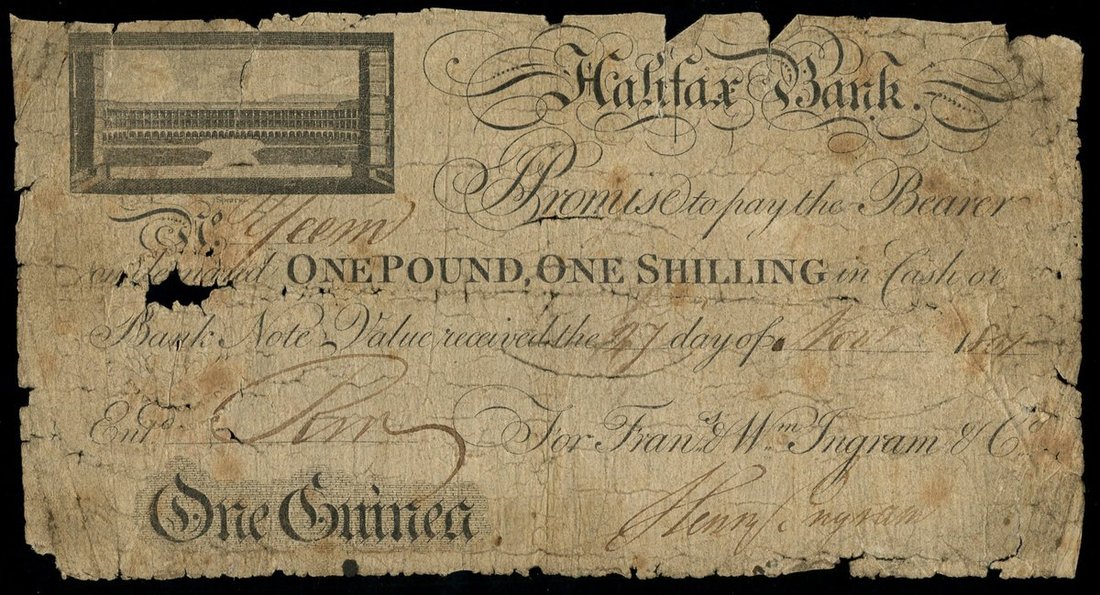 Halifax Bank.
I Promise to pay the Bearer
No.
on demand ONE POUND, ONE SHILLING in Cash or
Bank Note Value received the 27 day of Novr 1801
Entd.
For Frans. & Wm Ingram & Co.
One Guinea
Henry Ingram